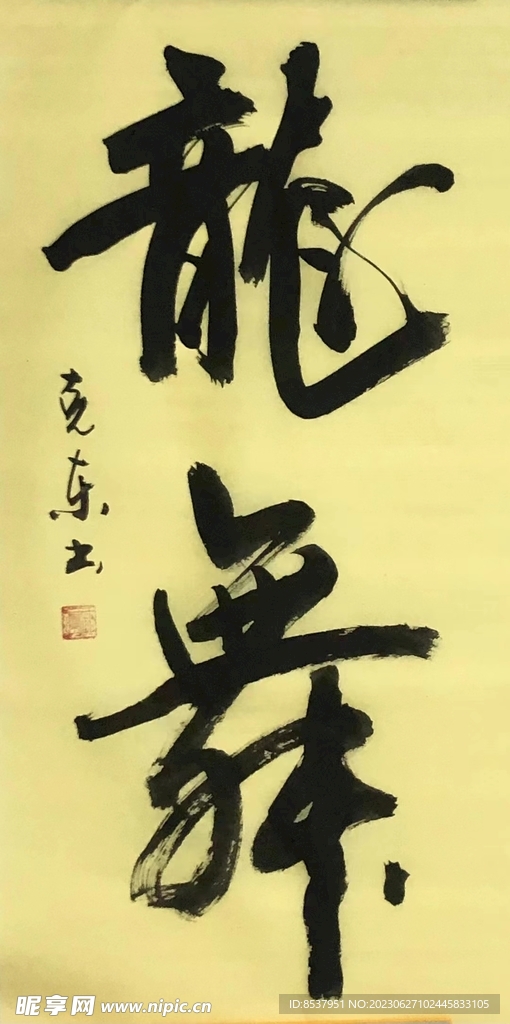 龍舞
克东书
昵享网 www.nipic.cn
ID:8537951 NO:20230627102445833105